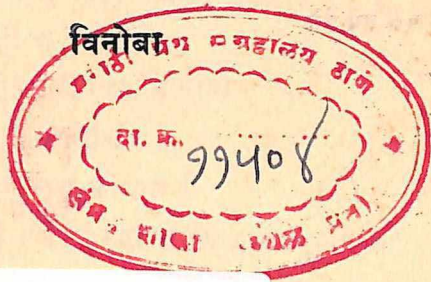 विनोबा
मराठी ग्रंथ संग्रहालय ठाणे
दा. क्र. ११५०४
शाखा